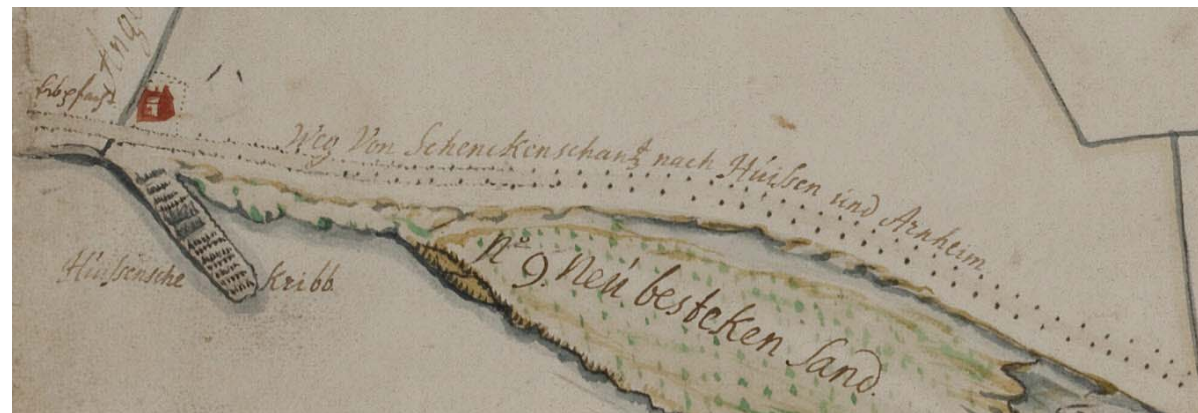 Erbpfacht
Weg Von Schenckenschantz nach Húissen und Arnheim
Húissensche Kribb
No 9. Neú besteken Sand.